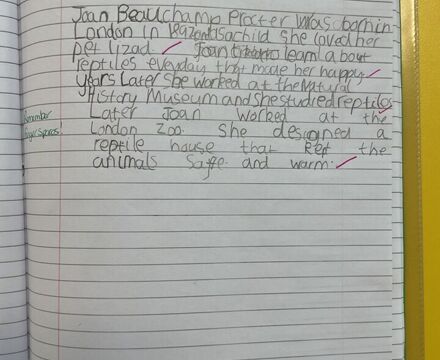 Joan Beauchamp Procter was born in
London in as a child she loved her
pet lizad Joan learn about
reptiles eveyday that made her happy
years Later she worked at the Natural
History Museum and she studied reptiles
Later Joan worked at the
London Zoo. She designed a
reptile house that kept the
animals saffe and warm.
Remember
finger spaces!